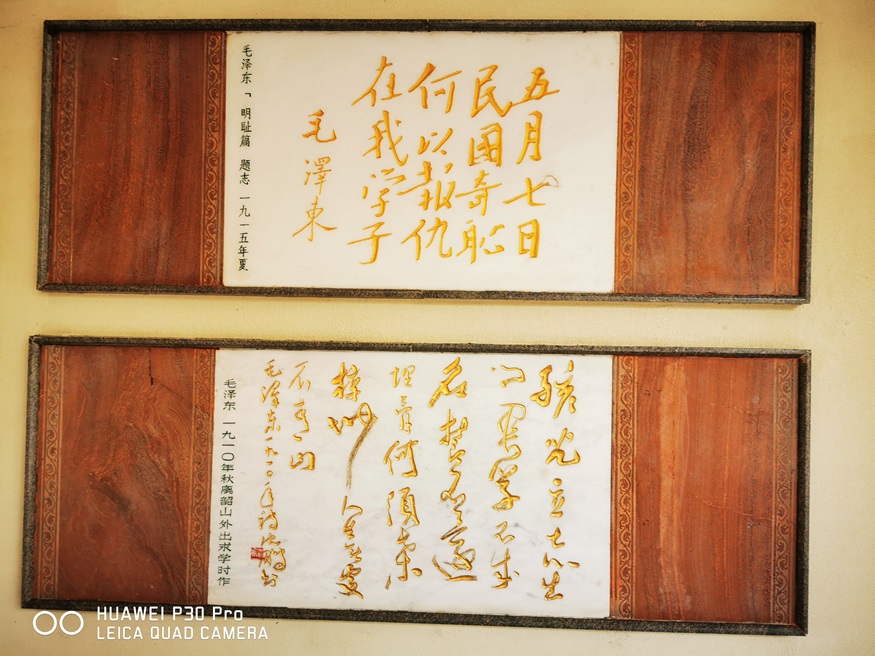 五月七日
民國奇恥
何以報仇
在我学子
毛澤東
毛泽东「 明耻篇 题志 一九一五年夏
孩児立志出
学不成
名誓不还
埋骨何须桑
梓地 人生无处
不青山
毛泽东一九一〇年诗
毛泽东 一九一〇年秋离韶山外出求学时作
HUAWEI P30 Pro
LEICA QUAD CAMERA